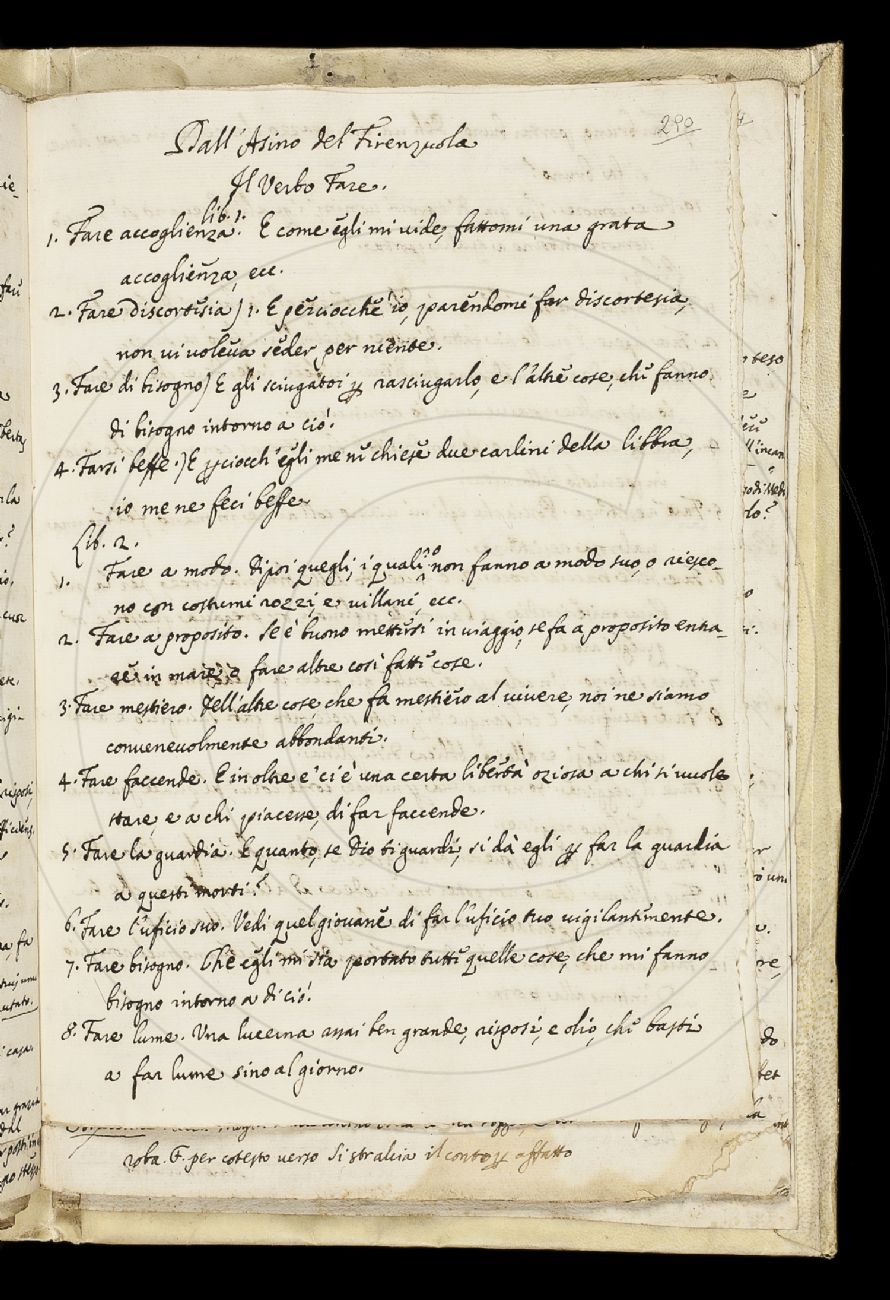 290
Dall'Asino del Firenzuola
Il Verbo Fare.
lib. 1.
1. Fare accoglienza. E come egli mi vide, fattomi una grata
accoglienza, ecc.
2. Fare Discortesia) 1. E perciocche io, parendomi far discortesia,
non vi voleva seder per niente.
3. Fare di bisogno) E gli sciugatoi p rasciugarlo, e l'altre cose, che fanno
di bisogno intorno a ciò.
4. Farsi beffe.) E pciocch'egli me ne chiese due carlini della libbra,
io me ne feci beffe
Lib. 2.
1. Fare a modo. Dipoi quegli, i quali o non fanno a modo suo, o riesco-
no con costumi rozzi, e villani, ecc.
2. Fare a proposito. Se è buono mettersi in viaggio, se fa a proposito entra-
re in mare, o fare altre così fatte cose.
3. Fare mestiero. Dell'altre cose, che fa mestiero al vivere, noi ne siamo
convenevolmente abbondanti.
4. Fare faccende. E in oltre e' ci è una certa libertà oziosa a chi si vuole
stare, e a chi piacesse, di far faccende.
5. Fare la guardia. E quanto, se Dio ti guardi, si dà egli p far la guardia
a questi morti?
6. Fare l'uficio suo. Vedi quel giovane di far l'uficio tuo vigilantemente.
7. Fare bisogno. Che egli mi sia portato tutte quelle cose, che mi fanno
bisogno intorno a di ciò.
8. Fare lume. Una lucerna assai ben grande, risposi, e olio, che basti
a far lume sino al giorno.
roba. G. per cotesto verso si stralcia il conto p affatto